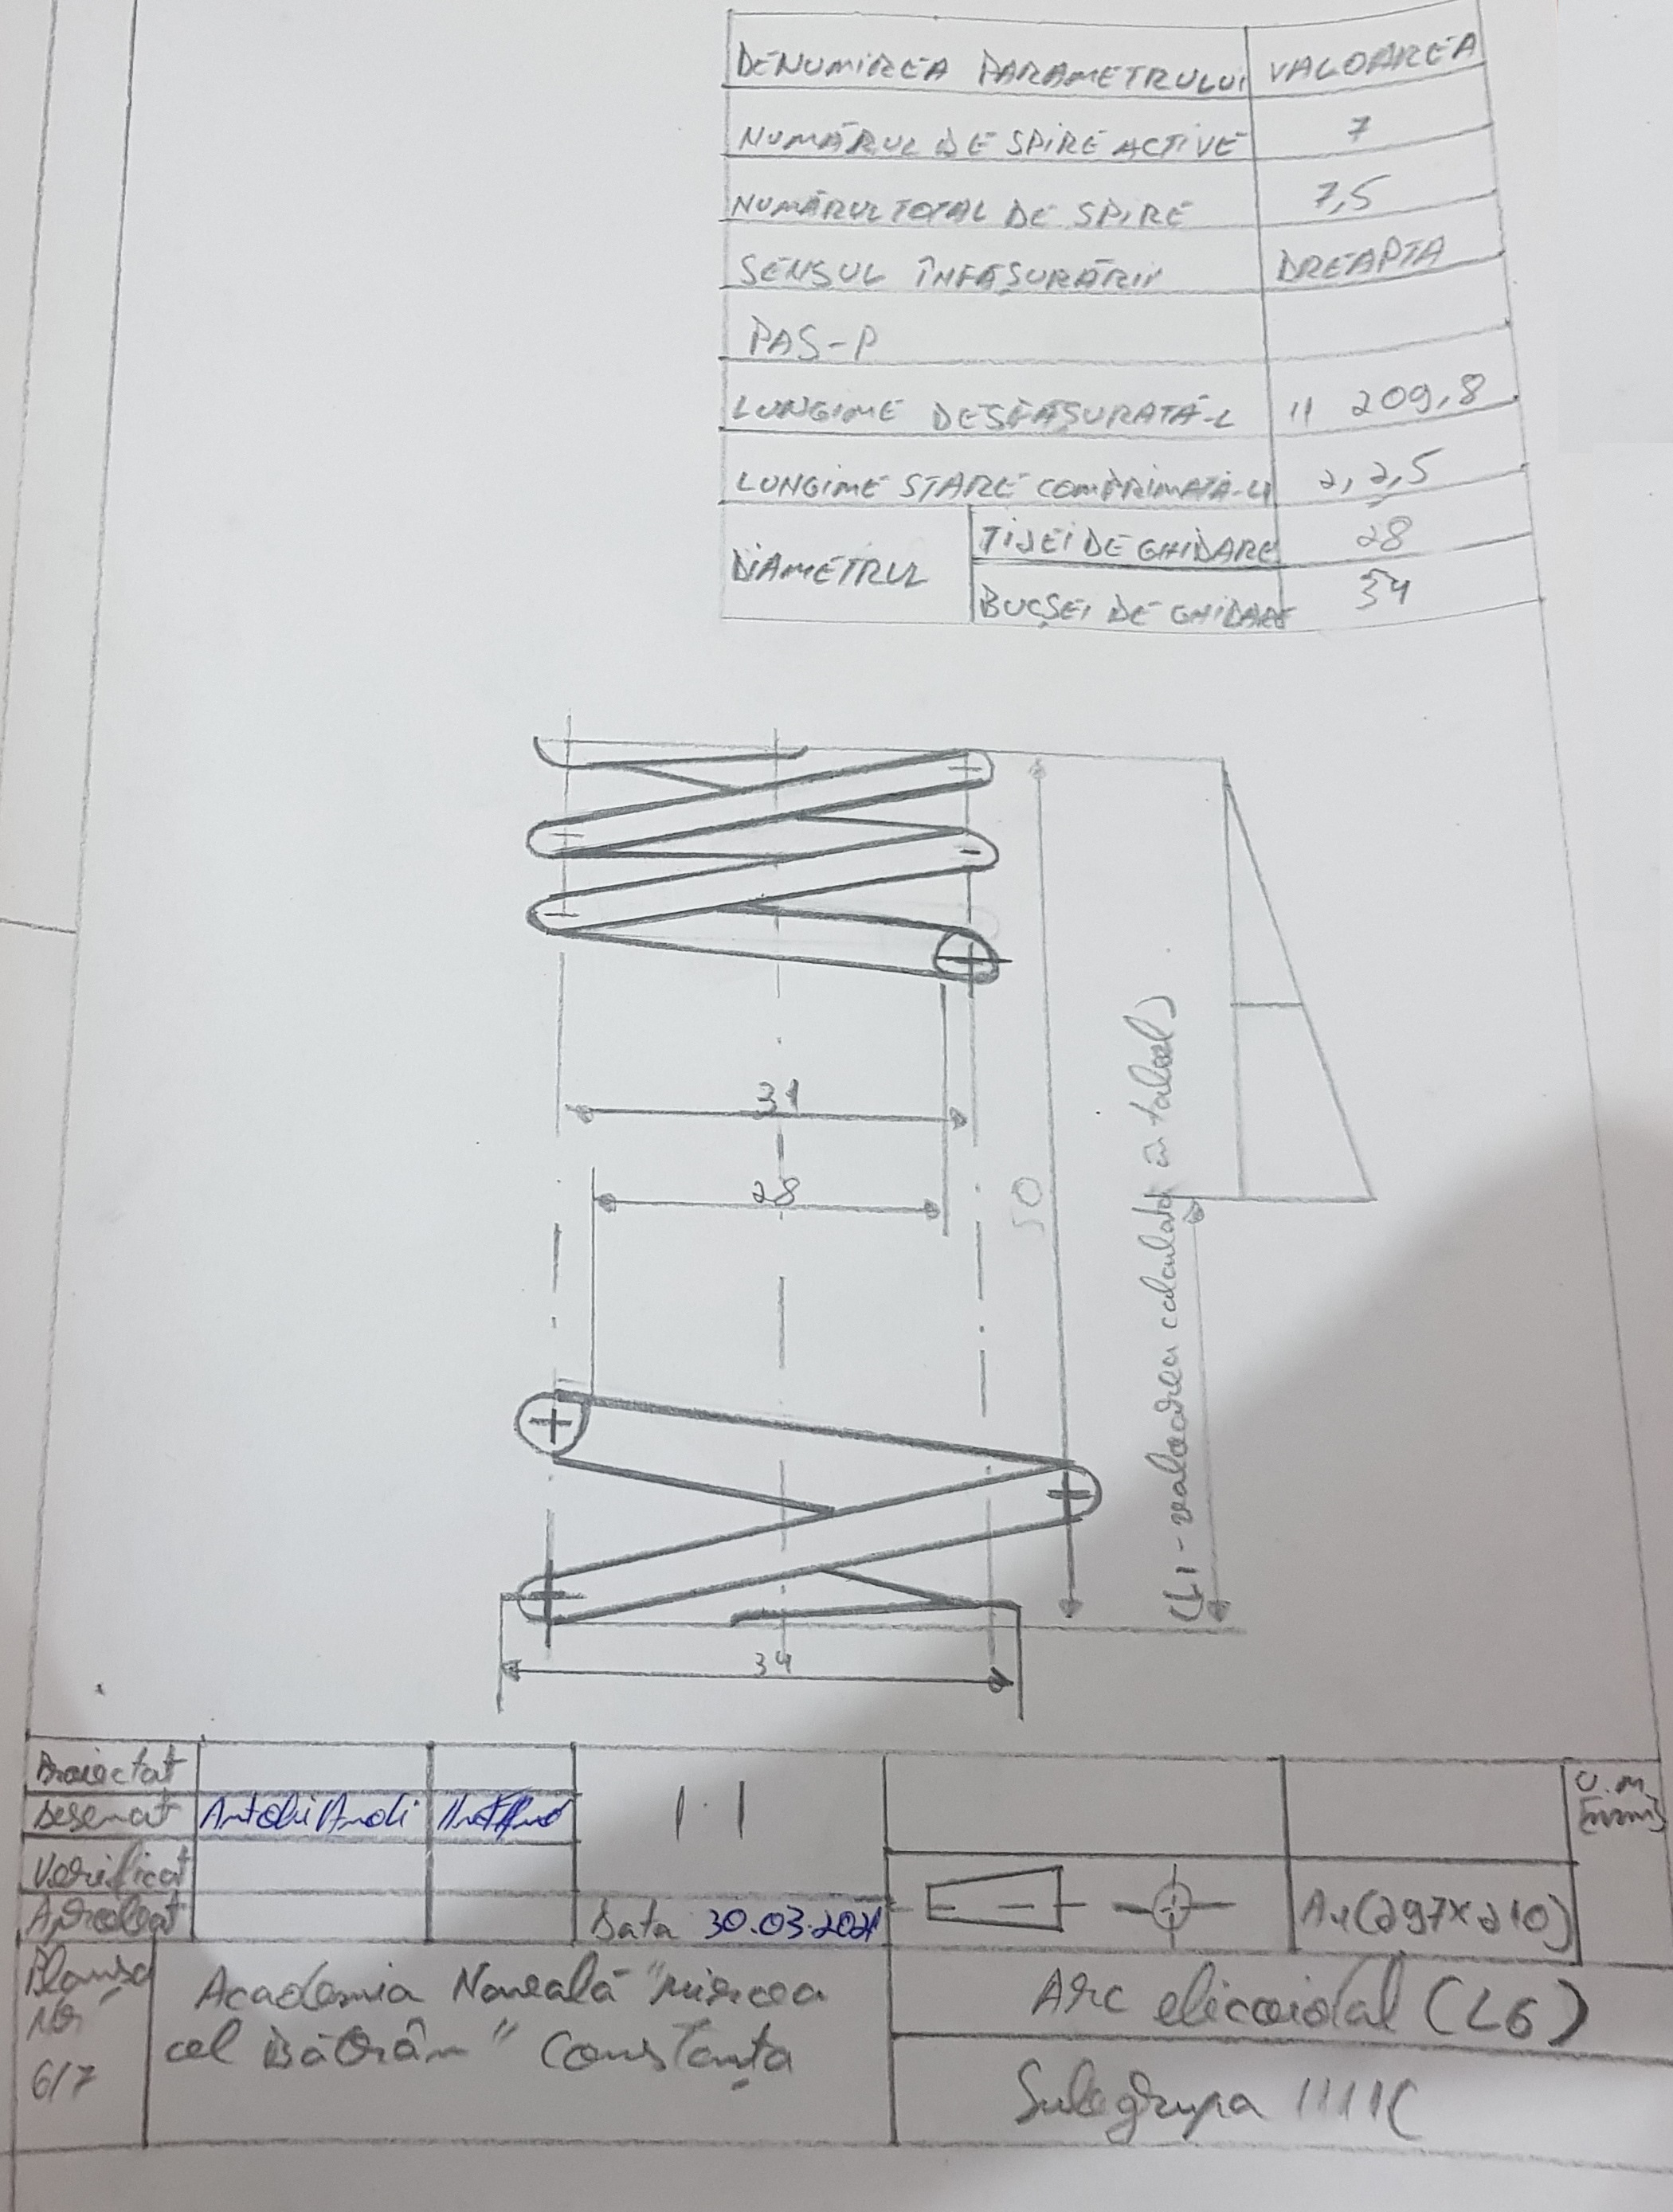 DENUMIREA PARAMETRULUI VALOAREA
NUMĂRUL DE SPIRE ACTIVE 7
NUMĂRUL TOTAL DE SPIRE 7,5
SENSUL ÎNFĂȘURĂRII DREAPTA
PAS-P
LUNGIME DESFĂȘURATĂ-L 11 209,8
LUNGIME STARE COMPRIMATĂ-L1 2,2,5
DIAMETRUL TIJEI DE GHIDARE 28
BUCȘEI DE GHIDARE 34
31
28
50
(L1 - valoarea calculată în tabel)
34
Proiectat
Desenat Antohi Andi
Verificat
Aprobat
1:1
Data 30.03.2021
U.M.
[mm]
A4(297x210)
Planșa
Nr
6/7
Academia Navală "Mircea
cel Bătrân" Constanța
Arc elicoidal (L6)
Subgrupa 1111C